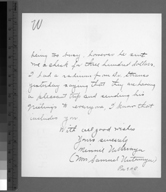 W
being too busy however he sent
me a check for three hundred dollars
I had a
yesterday saying that they are having
a pleasant trip and sending his
greetings to everyone I know that
includes you
With all good wishes
Yours sincerely
(Mrs Samuel